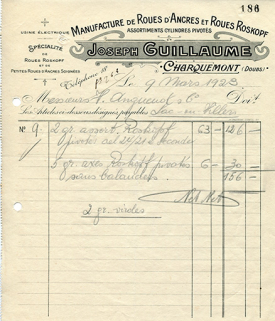 186
USINE ÉLECTRIQUE
MANUFACTURE DE ROUES D'ANCRES ET ROUES ROSKOPF
ASSORTIMENTS CYLINDRES PIVOTÉS
SPÉCIALITÉ
DE
ROUES ROSKOPF
ET DE
PETITES ROUES D'ANCRES SOIGNÉES
JOSEPH GUILLAUME
CHARQUEMONT (DOUBS)
Téléphone
Le 9 Mars 1923
Messieurs & Cie Doit
Nº 9 2 gr assort. Roskopf 63 — 126 —
pivotés secondes
5 gr. axes Roskopf pivotés 6 — 30 —
sans balanciers 156 —
Net Net
2 gr. viroles